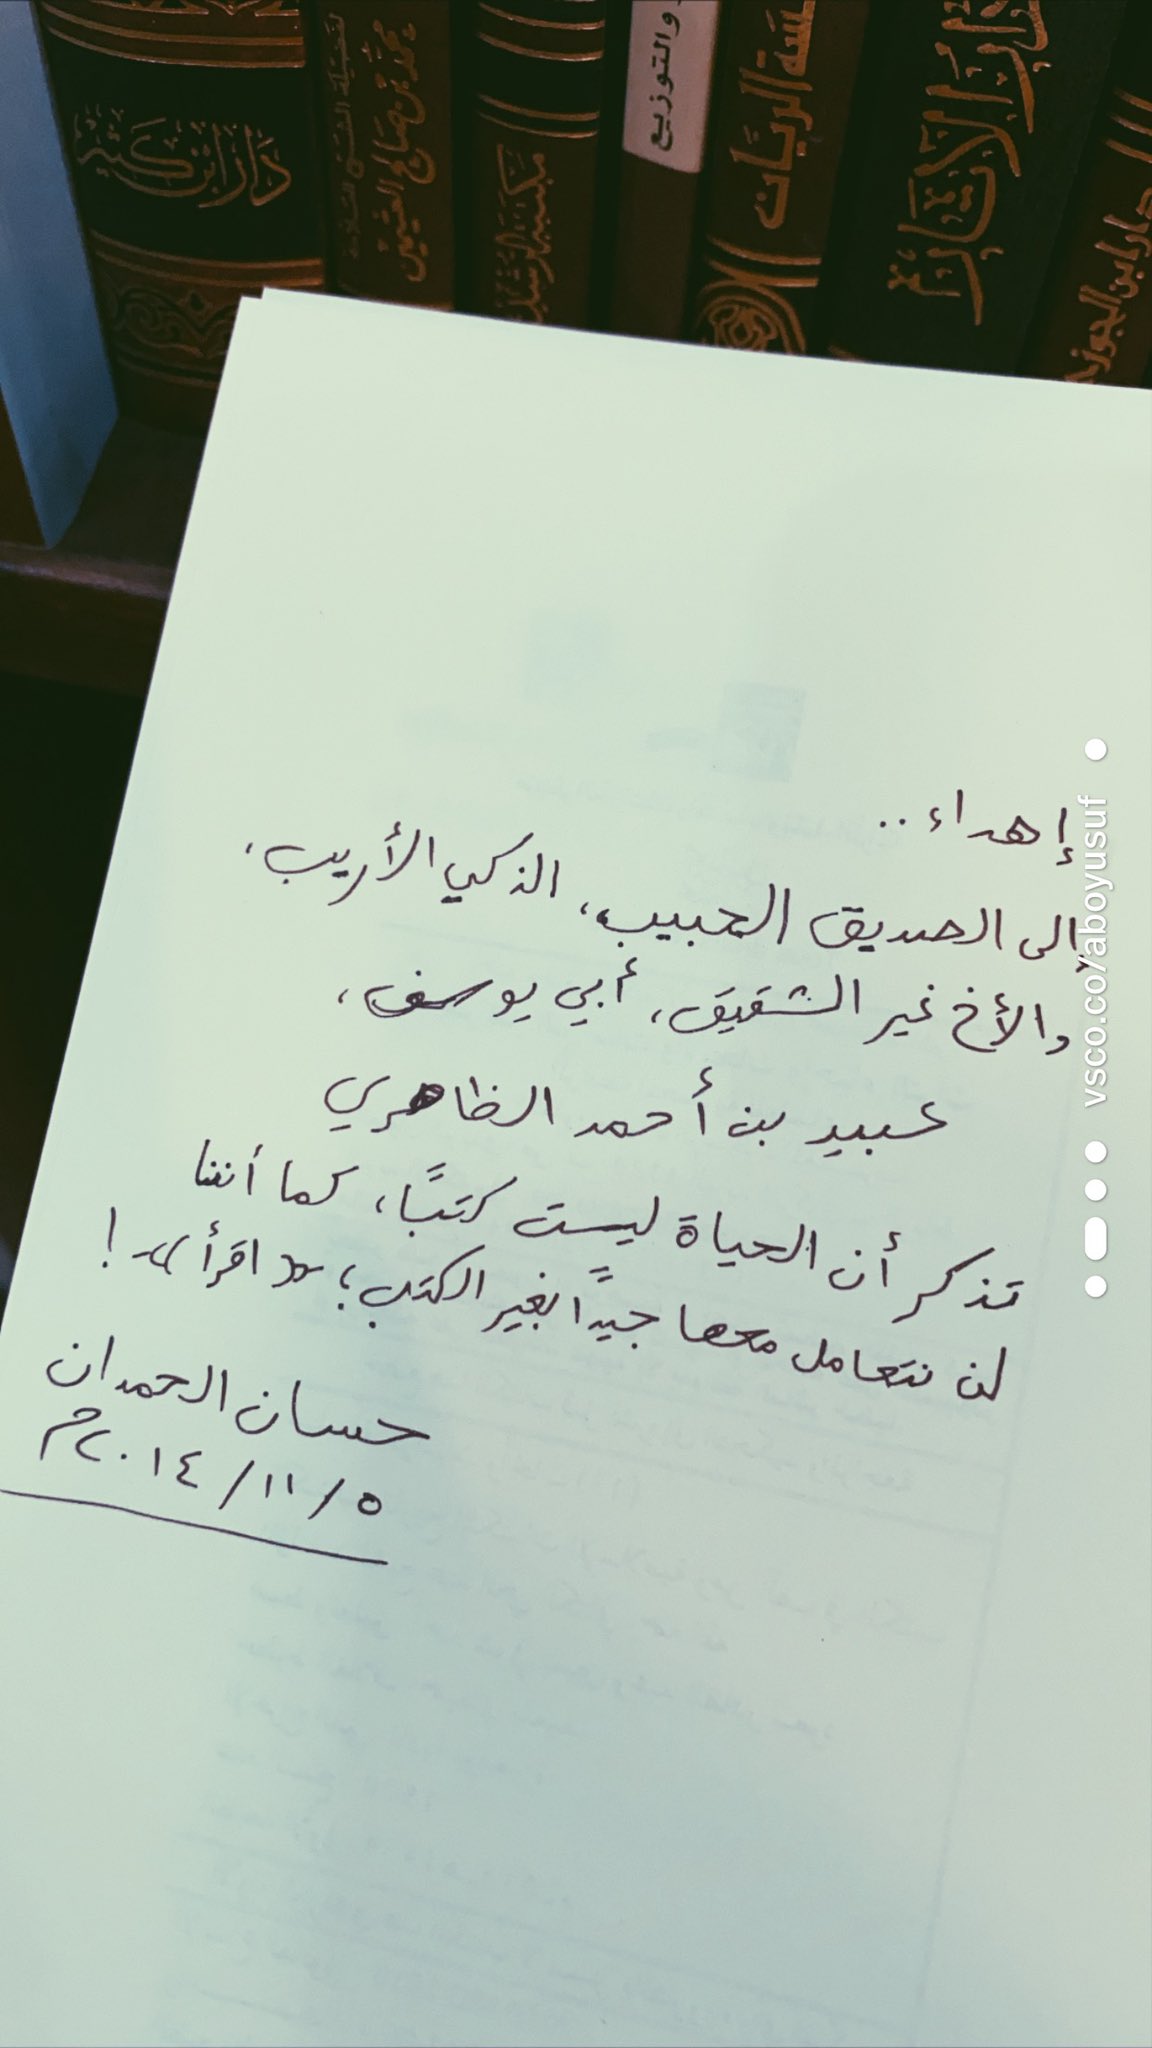 دار ابن كثير
محمد بن صالح العثيمين
مكتبة الرشد
والتوزيع
الريان
دار ابن الجوزي
إهداء ..
إلى الصديق الحبيب، الذكي الأريب،
والأخ غير الشقيق، أبي يوسف،
عبيد بن أحمد الظاهري
تذكر أن الحياة ليست كتبًا، كما أننا
لن نتعامل معها جيدًا بغير الكتب؛ «اقرأ»!
حسان الحمدان
٥/١١/٢٠١٤م
vsco.co/aboyusuf